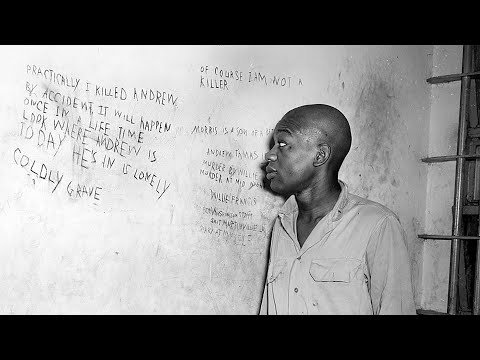 PRACTICALLY I KILLED ANDREW
BY ACCIDENT. IT WILL HAPPEN
ONCE IN A LIFE TIME
LOOK WHERE ANDREW IS
TODAY HE'S IN IS LONELY
COLDLY GRAVE
OF COURSE I AM NOT A
KILLER
MORRIS IS A SON OF A
ANDREW TOMAS
MURDER BY WILLIE
MURDER AT MID
WILLIE FRANCIS